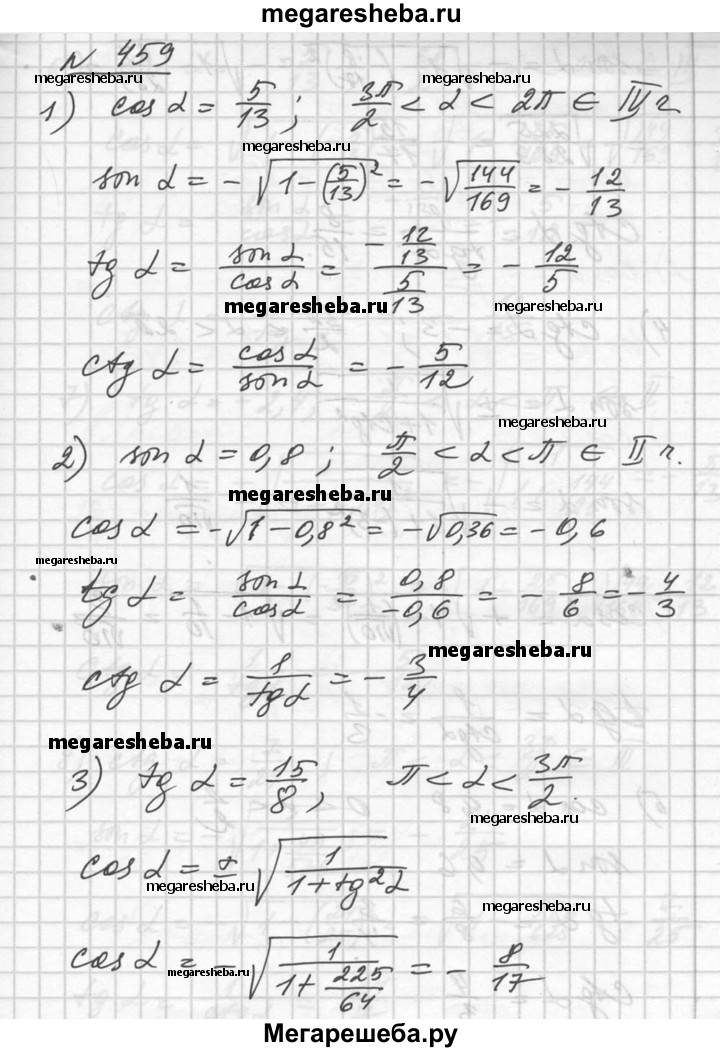 megaresheba.ru
№ 459
megaresheba.ru megaresheba.ru
1) cos α = 5/13 ; 3π/2 < α < 2π ∈ IV г
megaresheba.ru
son α = - √(1 - (5/13)²) = - √(144/169) = - 12/13
tg α = son α/cos α = (- 12/13)/(5/13) = - 12/5
megaresheba.ru megaresheba.ru
ctg α = cos α/son α = - 5/12
megaresheba.ru
2) son α = 0,8 ; π/2 < α < π ∈ II г.
megaresheba.ru
cos α = - √(1 - 0,8²) = - √0,36 = - 0,6
megaresheba.ru
tg α = son α/cos α = 0,8/-0,6 = - 8/6 = - 4/3
megaresheba.ru
ctg α = 1/tg α = - 3/4
megaresheba.ru
3) tg α = 15/8 , π < α < 3π/2 .
megaresheba.ru
cos α = ± √(1/(1 + tg² α))
megaresheba.ru
megaresheba.ru
cos α = - √(1/(1 + 225/64)) = - 8/17
megaresheba.ru
Мегарешеба.ру